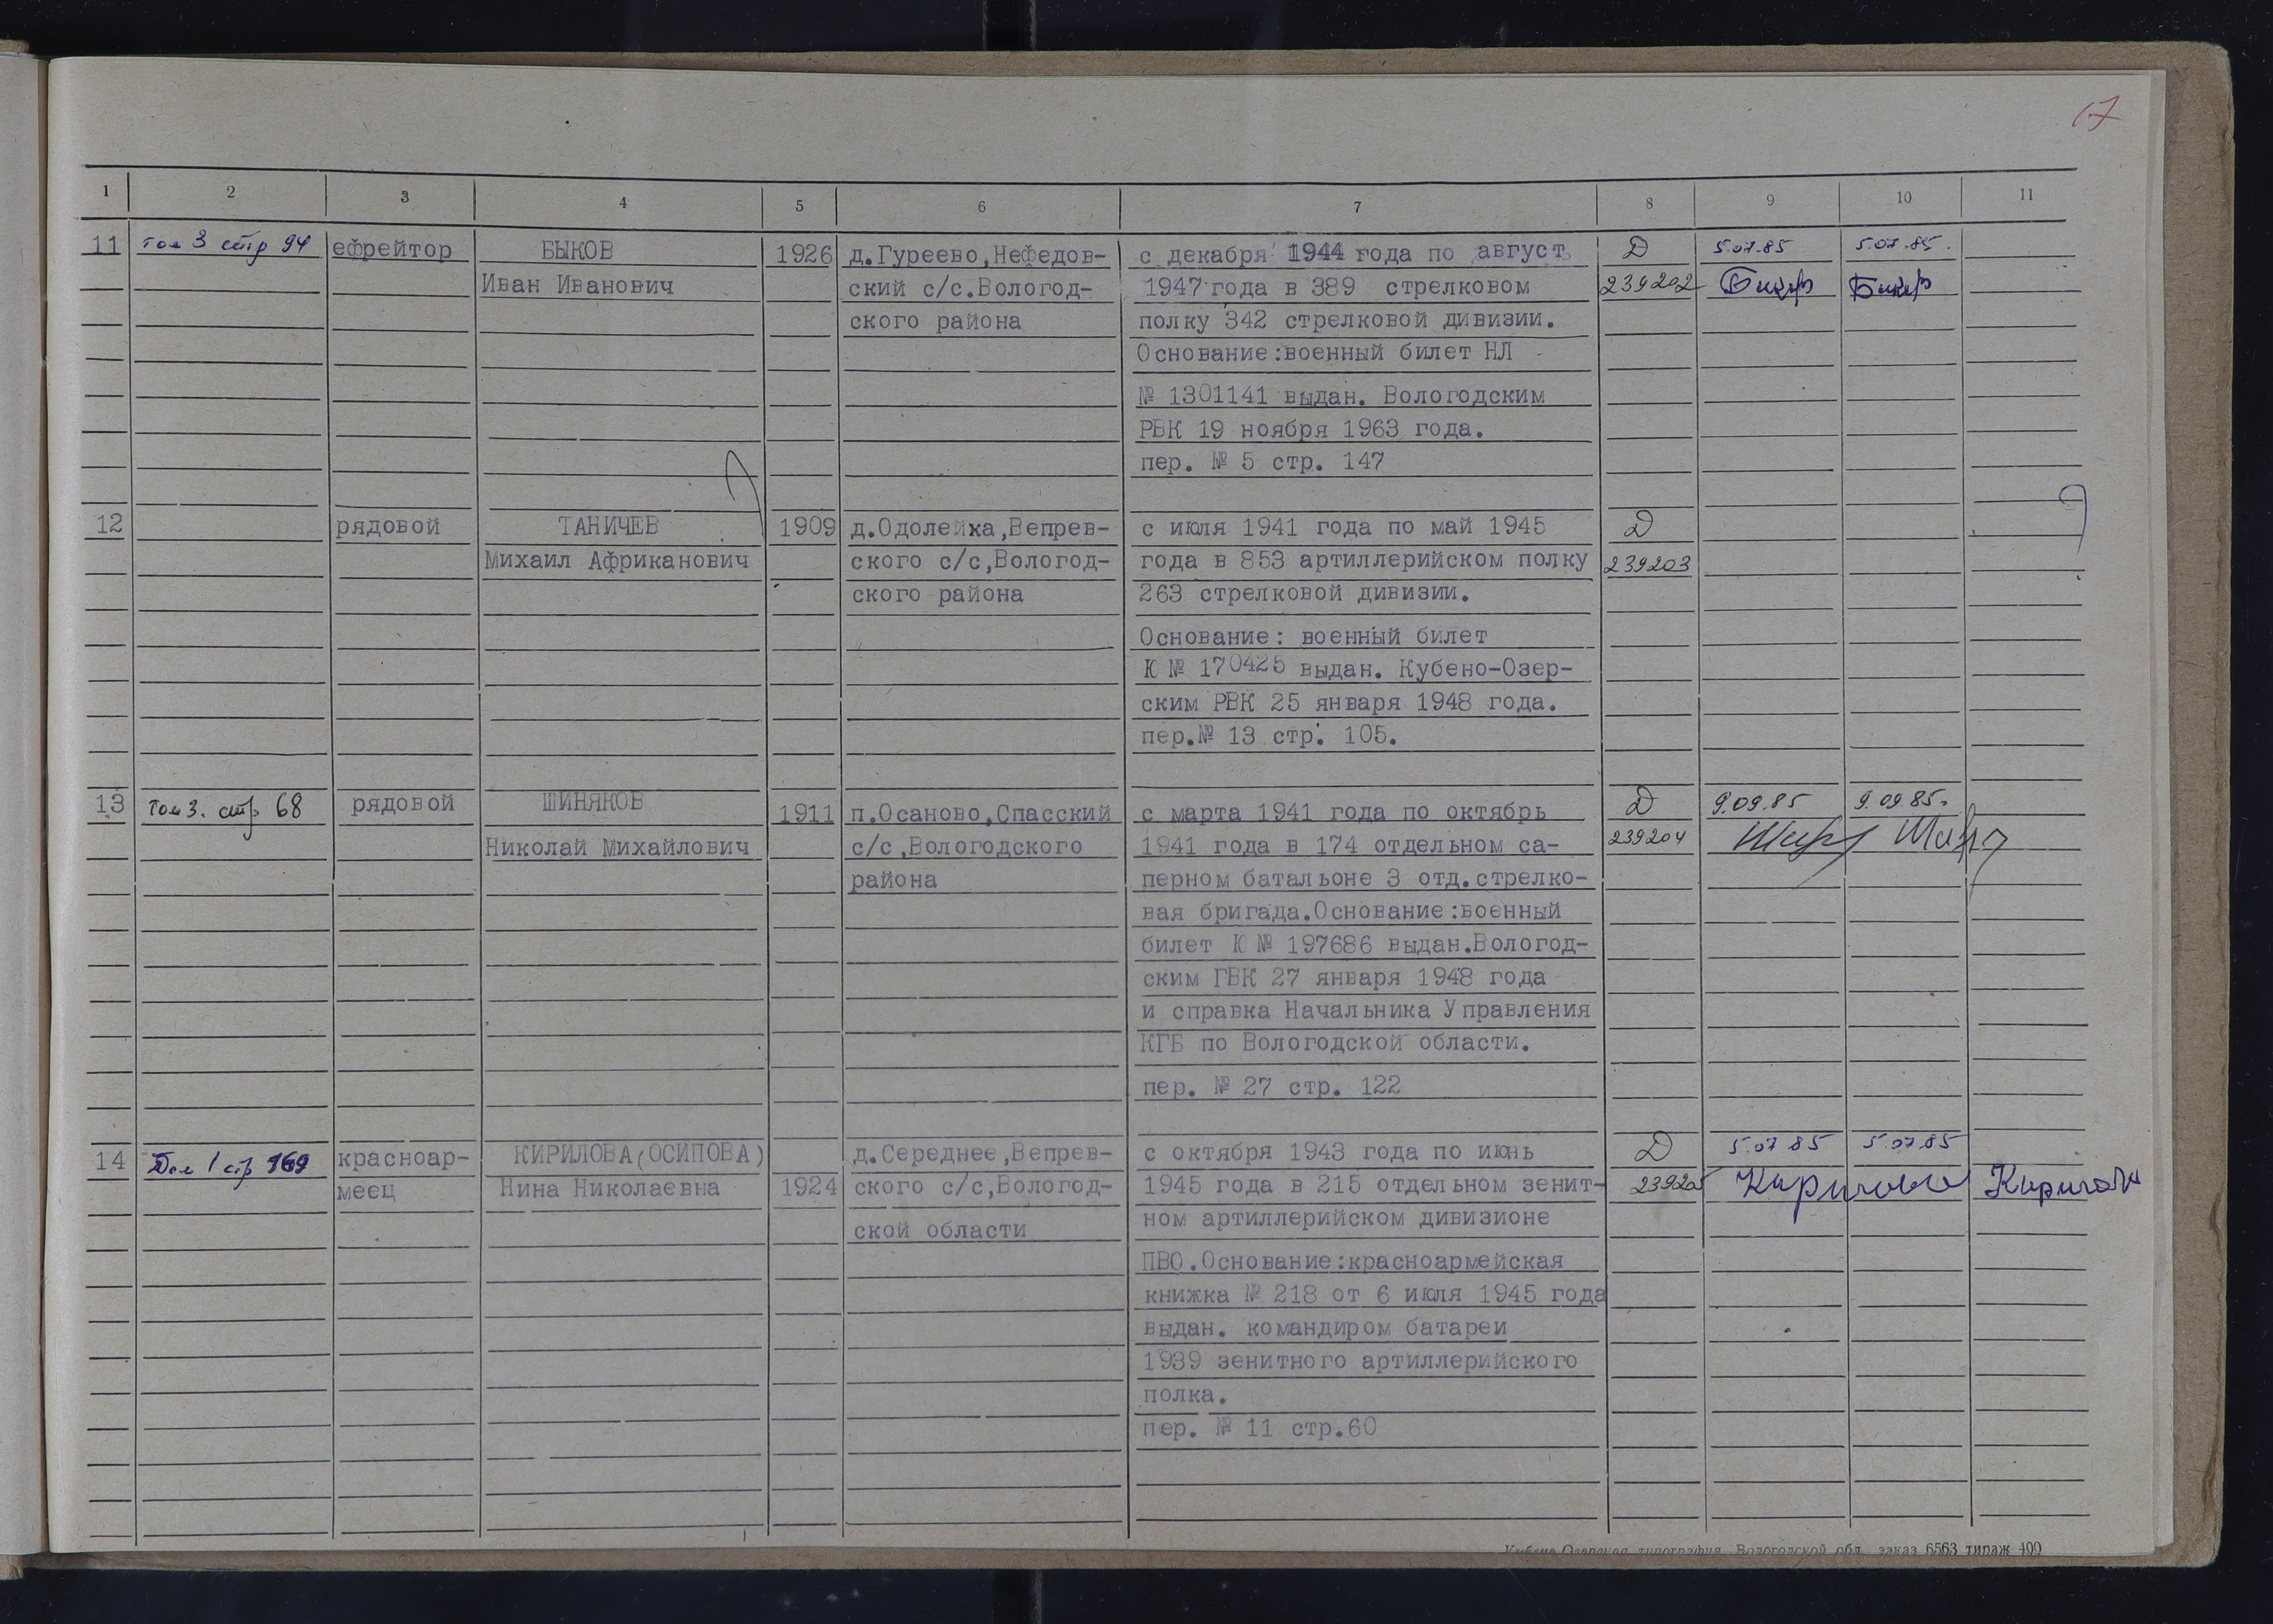 17
1 2 3 4 5 6 7 8 9 10 11
11 том 3 стр 94 ефрейтор БЫКОВ 1926 д.Гуреево,Нефедов- с декабря 1944 года по август Д 5.07.85 5.07.85.
Иван Иванович ский с/с.Вологод- 1947 года в 389 стрелковом 239202
ского района полку 342 стрелковой дивизии.
Основание:военный билет НЛ
№ 1301141 выдан. Вологодским
РВК 19 ноября 1963 года.
пер. № 5 стр. 147
12 рядовой ТАНИЧЕВ 1909 д.Одолейка,Вепрев- с июля 1941 года по май 1945 Д
Михаил Африканович ского с/с,Вологод- года в 853 артиллерийском полку 239203
ского района 263 стрелковой дивизии.
Основание: военный билет
Ю № 170425 выдан. Кубено-Озер-
ским РВК 25 января 1948 года.
пер.№ 13 стр. 105.
13 том 3. стр. 68 рядовой ШИНЯКОВ 1911 п.Осаново,Спасский с марта 1941 года по октябрь Д 9.09.85 9.09.85.
Николай Михайлович с/с,Вологодского 1941 года в 174 отдельном са- 239204
района перном батальоне 3 отд.стрелко-
вая бригада.Основание:военный
билет Ю № 197686 выдан.Вологод-
ским ГВК 27 января 1948 года
и справка Начальника Управления
КГБ по Вологодской области.
пер. № 27 стр. 122
14 Том 1 стр 169 красноар- КИРИЛОВА(ОСИПОВА) д.Середнее,Вепрев- с октября 1943 года по июнь Д 5.07 85 5.07.85
меец Нина Николаевна 1924 ского с/с,Вологод- 1945 года в 215 отдельном зенит- 239205 Кирилова Кирилова
ской области ном артиллерийском дивизионе
ПВО.Основание:красноармейская
книжка № 218 от 6 июля 1945 года
выдан. командиром батареи
1939 зенитного артиллерийского
полка.
пер. № 11 стр.60
Кубено-Озерская типография Вологодской обл. заказ 6563 тираж 400